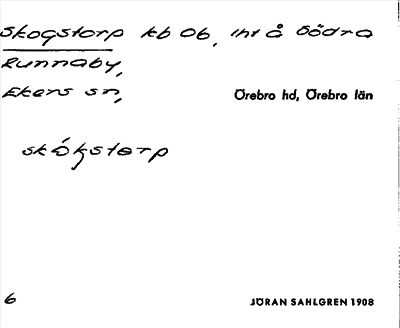 Skogstorp kb 06, int å Södra
Runnaby,
Ekers sn,
Örebro hd, Örebro län
skókstorp
6
JÖRAN SAHLGREN 1908